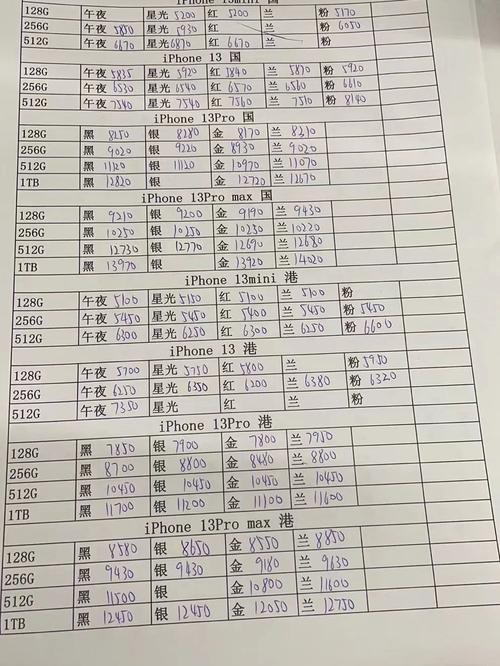 iPhone 13mini 国
128G 午夜 星光 5200 红 5200 兰 粉 5170
256G 午夜 5850 星光 5930 红 兰 粉 6050
512G 午夜 6670 星光 6870 红 6670 兰 粉
iPhone 13 国
128G 午夜 5835 星光 5920 红 5840 兰 5870 粉 5920
256G 午夜 6530 星光 6540 红 6570 兰 6560 粉 6610
512G 午夜 7540 星光 7540 红 7560 兰 7510 粉 8140
iPhone 13Pro 国
128G 黑 8250 银 8280 金 8170 兰 8210
256G 黑 9020 银 9220 金 8930 兰 9020
512G 黑 11120 银 11120 金 10970 兰 11070
1TB 黑 12820 银 金 12720 兰 12670
iPhone 13Pro max 国
128G 黑 9210 银 9200 金 9190 兰 9430
256G 黑 10250 银 10250 金 10230 兰 10220
512G 黑 12730 银 12770 金 12690 兰 12680
1TB 黑 13970 银 金 13920 兰 14020
iPhone 13mini 港
128G 午夜 5100 星光 5150 红 5100 兰 5100 粉
256G 午夜 5450 星光 5450 红 5400 兰 5450 粉 5450
512G 午夜 6300 星光 6250 红 6300 兰 6250 粉 6600
iPhone 13 港
128G 午夜 5700 星光 5750 红 5800 兰 粉 5950
256G 午夜 6250 星光 6350 红 6200 兰 6380 粉 6320
512G 午夜 7350 星光 红 兰 粉
iPhone 13Pro 港
128G 黑 7850 银 7900 金 7800 兰 7950
256G 黑 8700 银 8800 金 8480 兰 8800
512G 黑 10450 银 10450 金 10450 兰 10450
1TB 黑 11700 银 11200 金 11100 兰 11600
iPhone 13Pro max 港
128G 黑 8580 银 8650 金 8550 兰 8850
256G 黑 9430 银 9430 金 9180 兰 9630
512G 黑 11500 银 金 10800 兰 11600
1TB 黑 12450 银 12450 金 12050 兰 12750